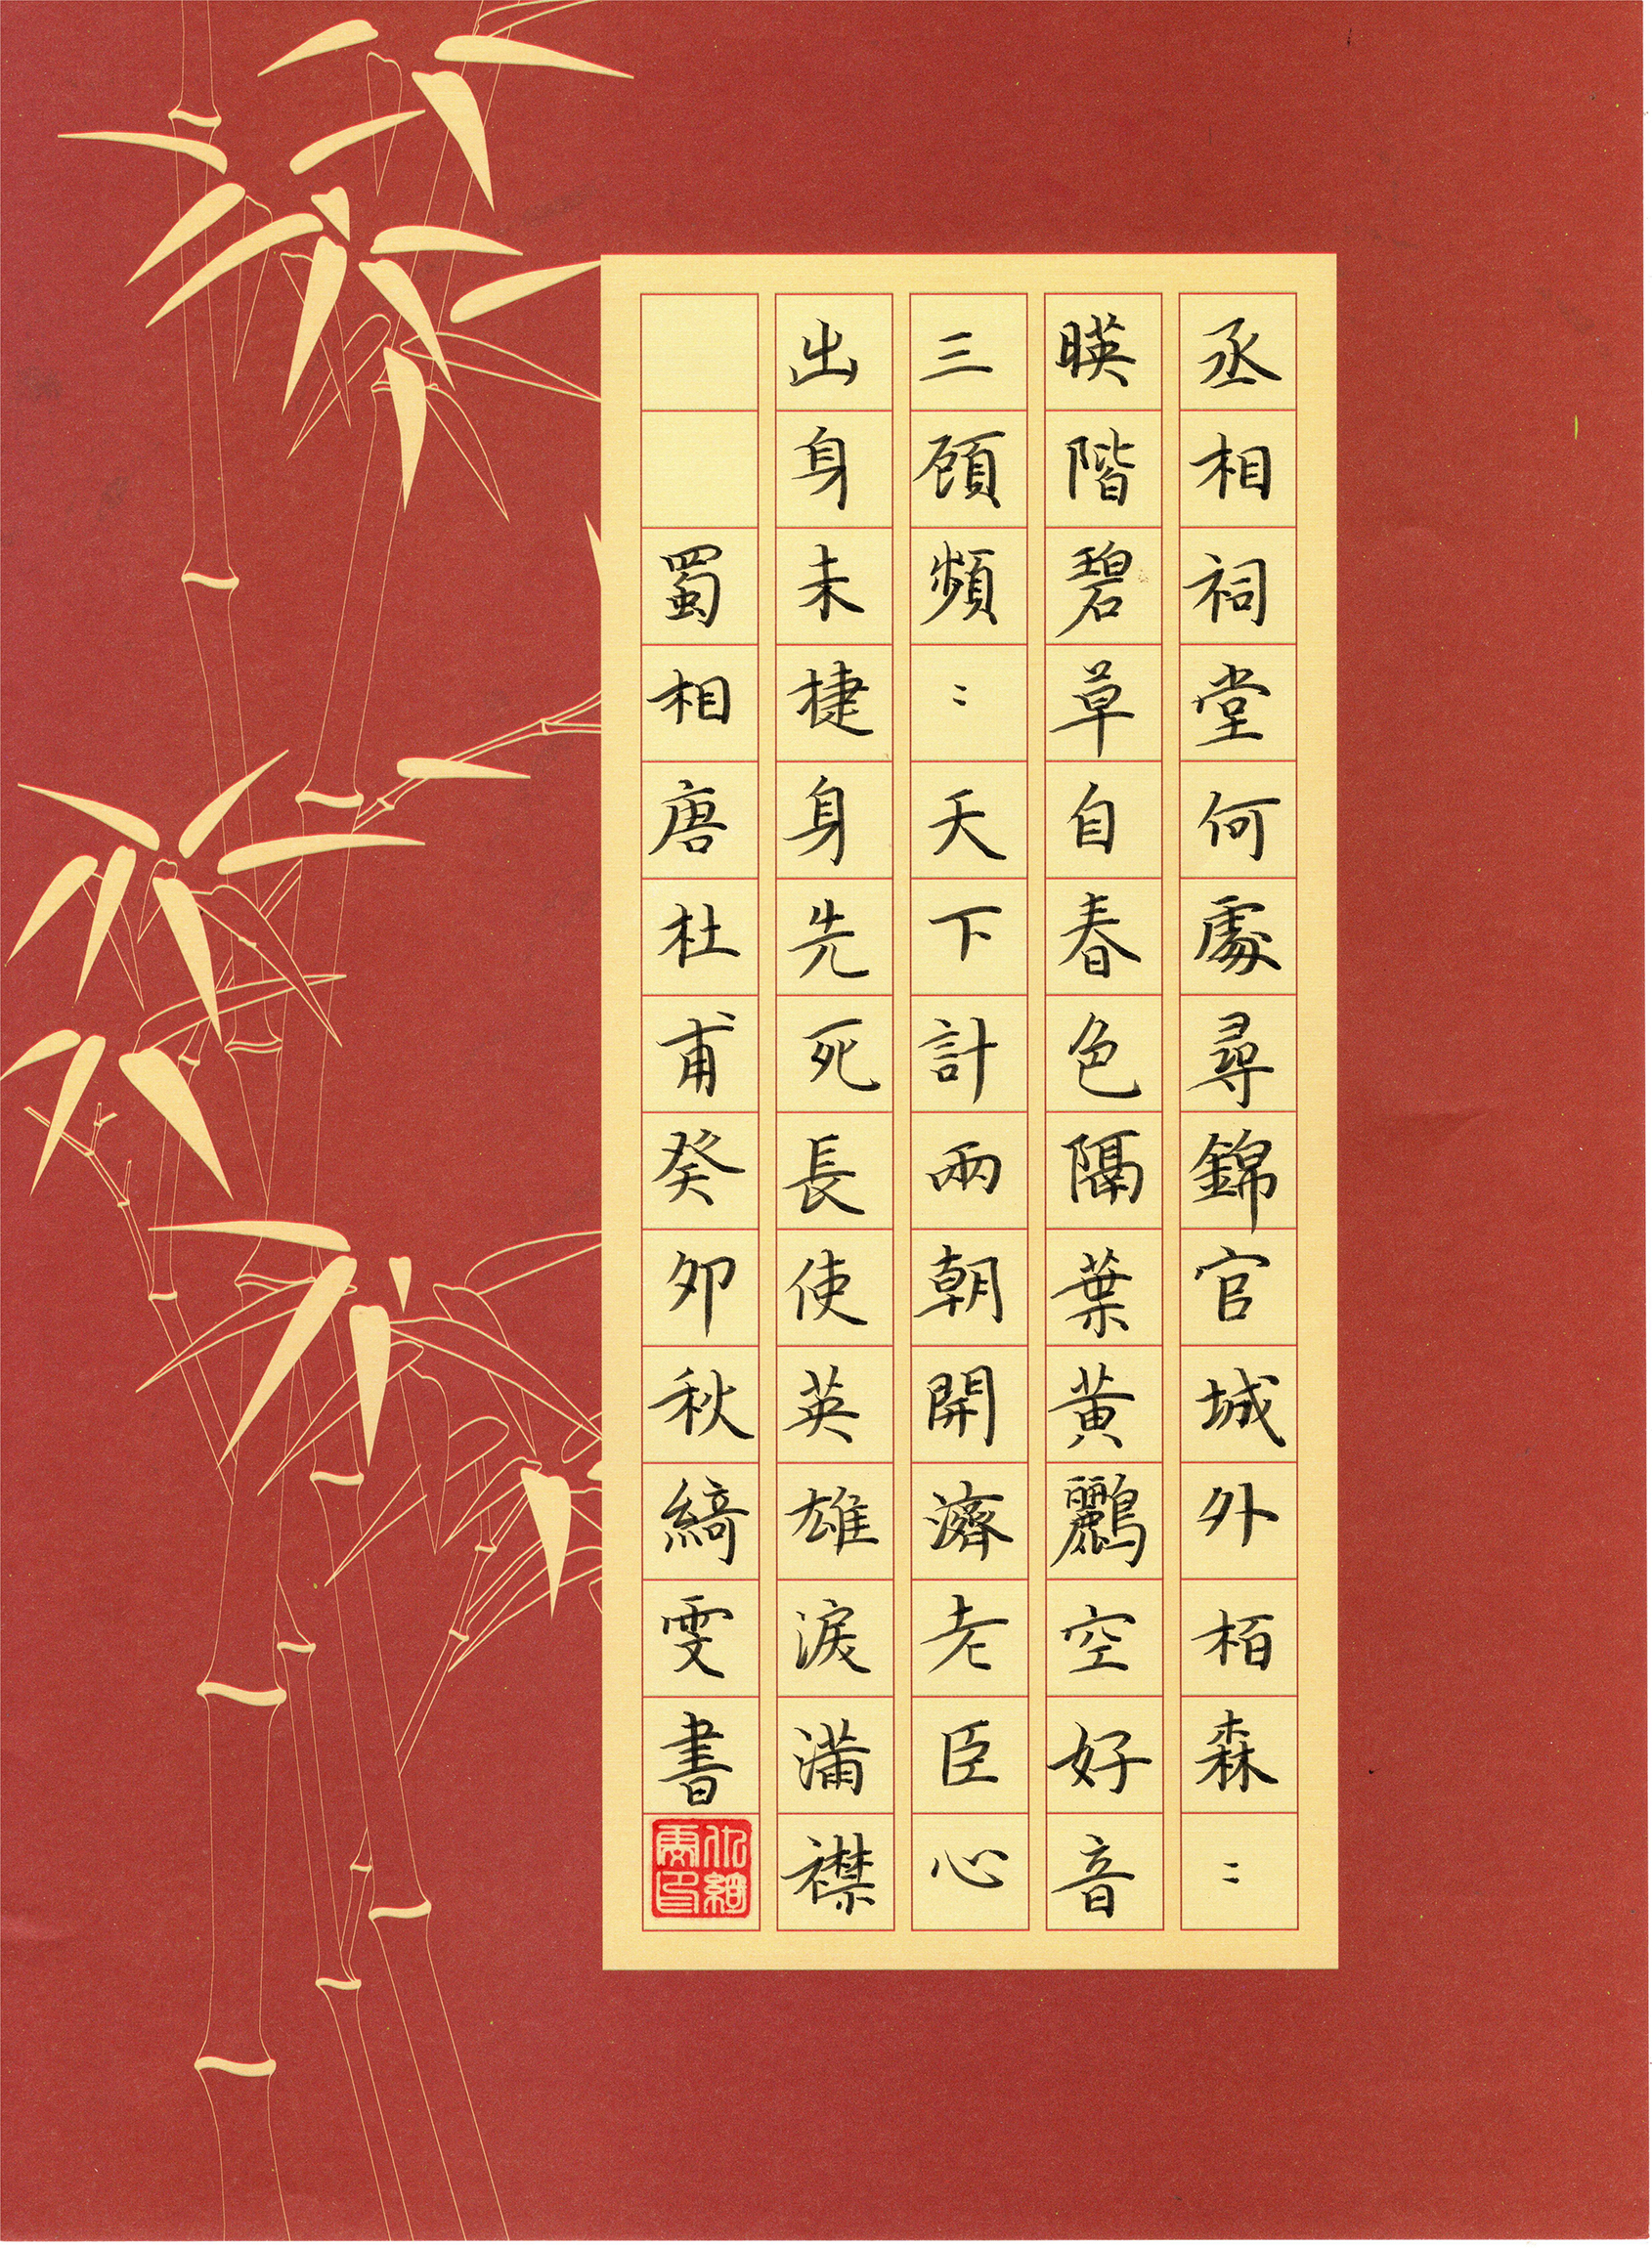 丞相祠堂何處尋錦官城外栢森〻
暎階碧草自春色隔葉黄鸝空好音
三顧頻〻天下計兩朝開濟老臣心
出身未捷身先死長使英雄淚滿襟
蜀相唐杜甫癸卯秋綺雯書